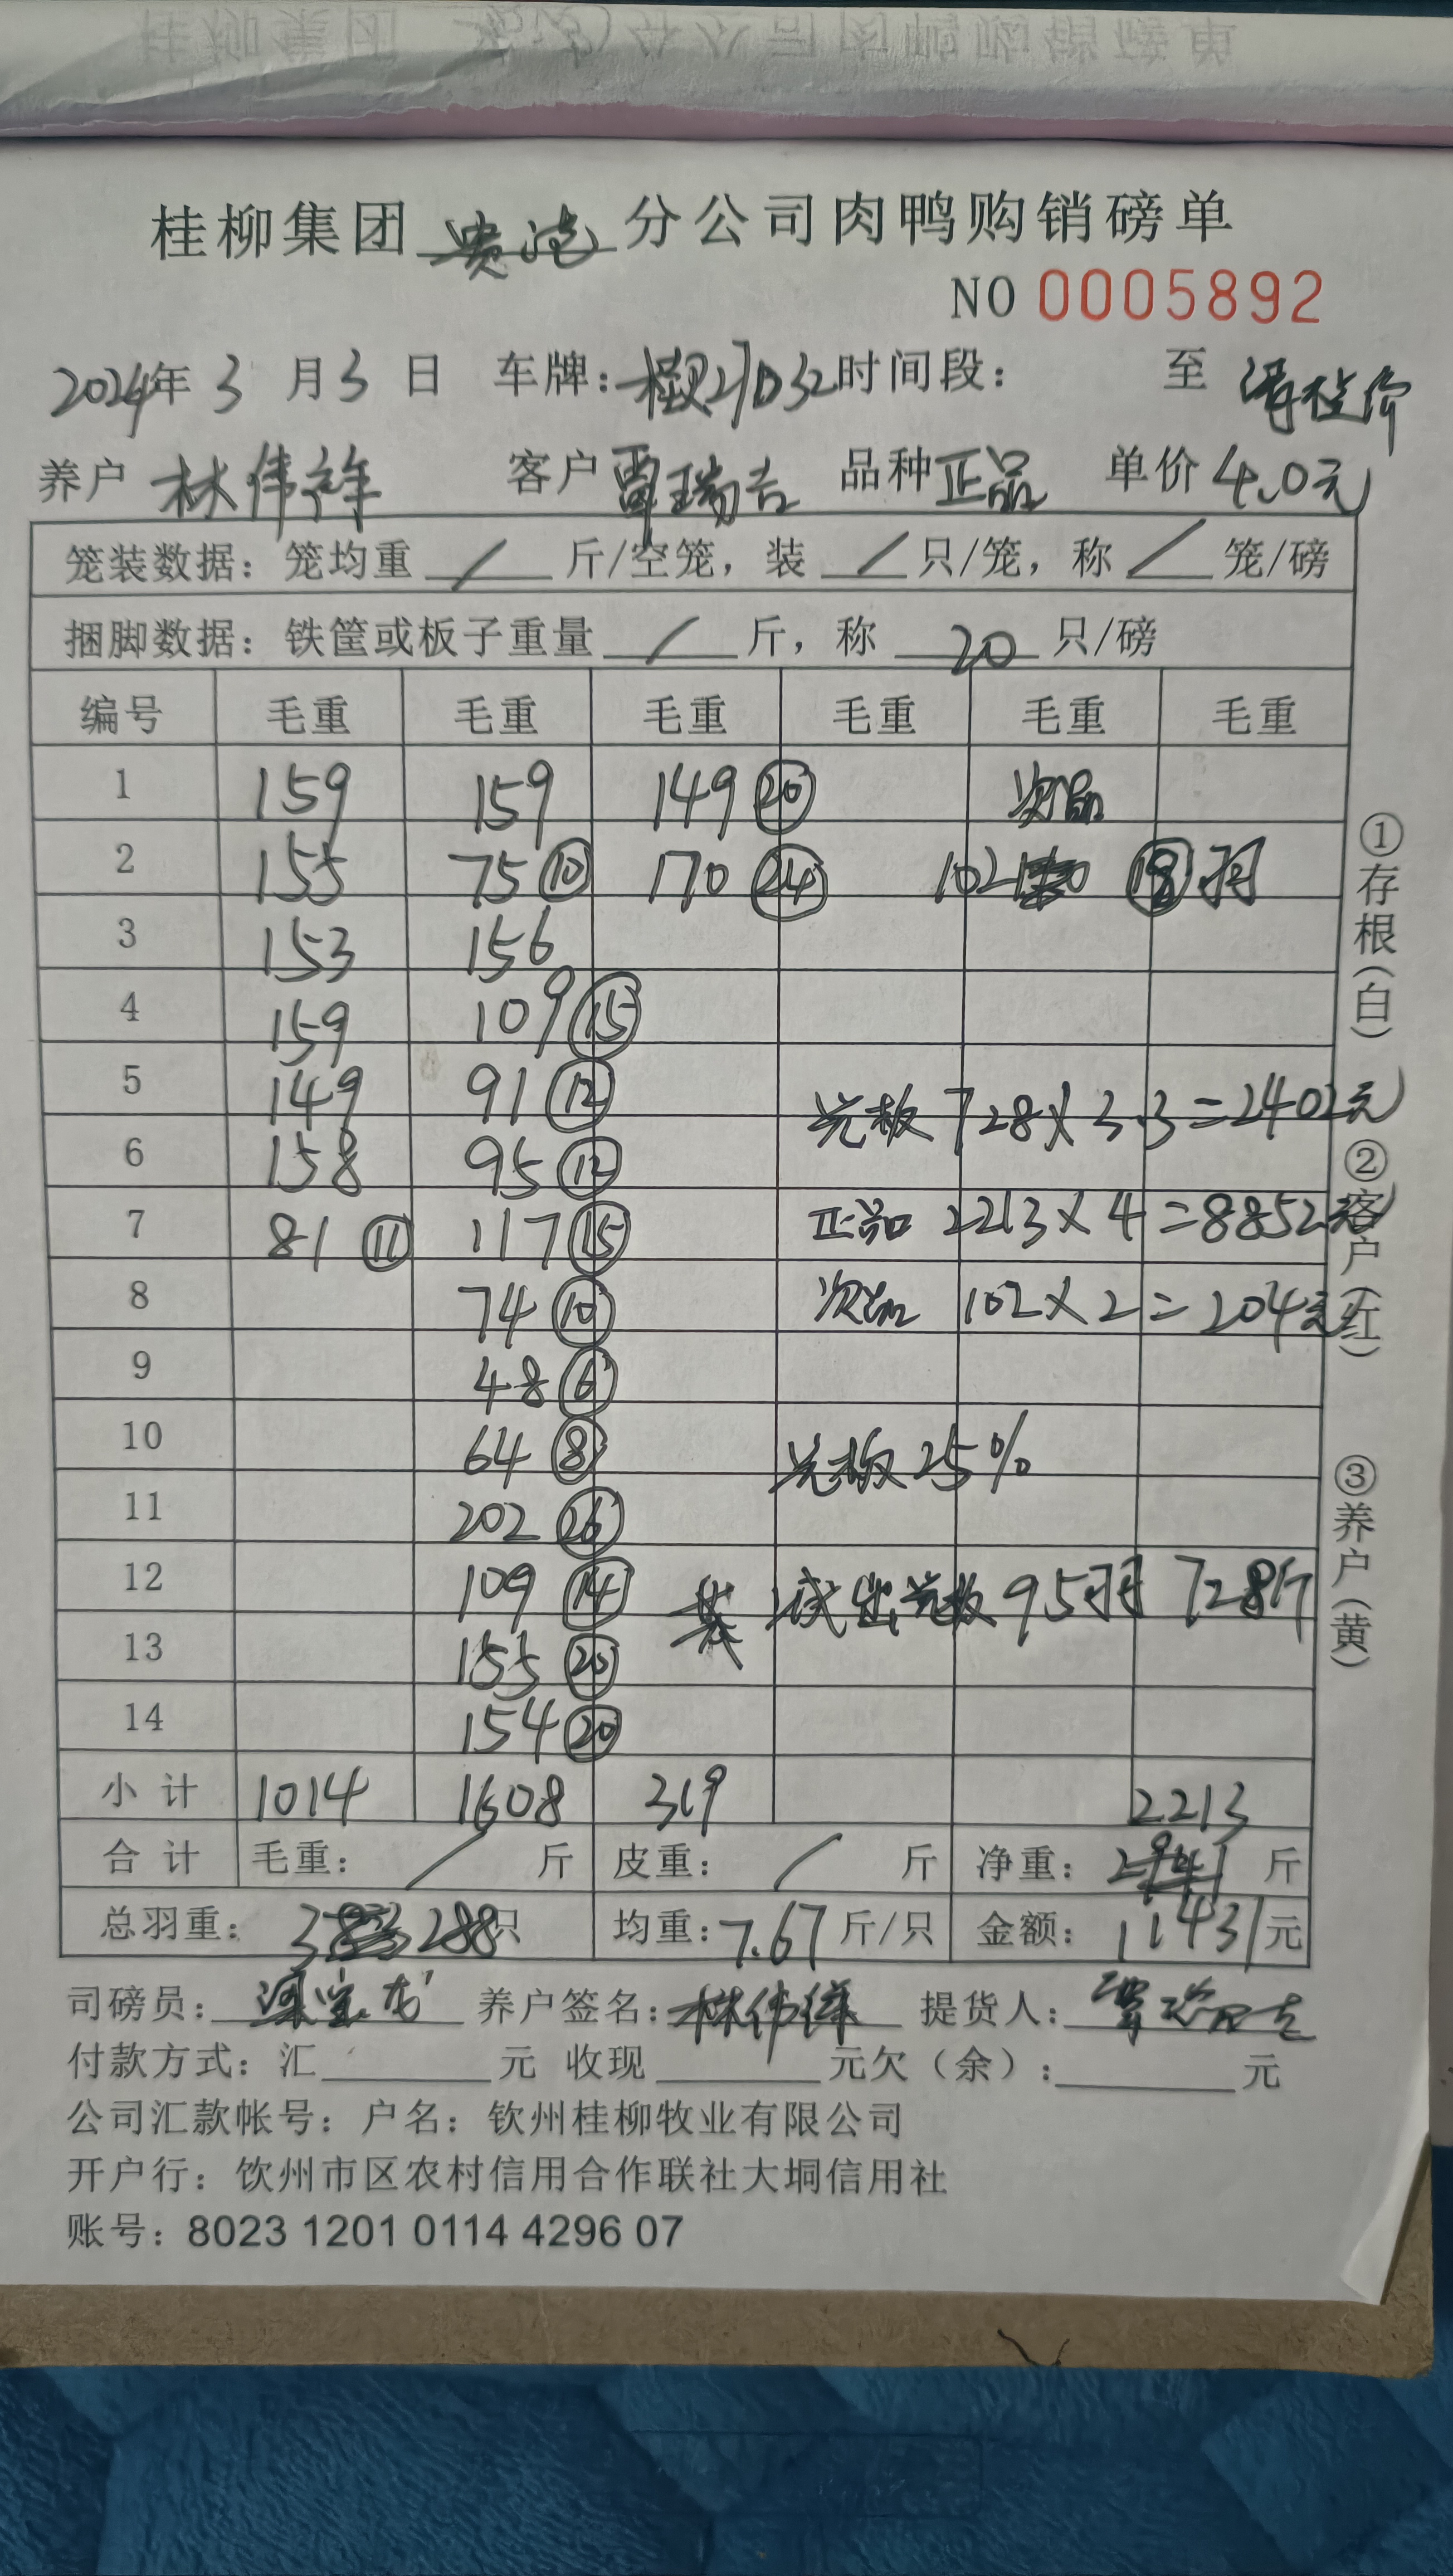 桂柳集团 贵港 分公司肉鸭购销磅单
NO 0005892
2024年 3 月 3 日 车牌: 时间段: 至 待检价
养户 林伟祥 客户 覃瑞吉 品种 正品 单价 4.0元
笼装数据: 笼均重 / 斤/空笼, 装 / 只/笼, 称 / 笼/磅
捆脚数据: 铁筐或板子重量 / 斤, 称 20 只/磅
编号 毛重 毛重 毛重 毛重 毛重 毛重
1 159 159 149 ⑳ 次品
2 155 75 ⑩ 170 ㉔ 102 ⑱ 羽
3 153 156
4 159 109 ⑮
5 149 91 ⑫ 光板 728×3.3=2402元
6 158 95 ⑫
7 81 ⑪ 117 ⑮ 正品 2213×4=8852元
8 74 ⑩ 次品 102×2=204元
9 48 ⑥
10 64 ⑧ 光板25%
11 202 ㉖
12 109 ⑭ 其 试出光板95羽 728斤
13 155 ⑳
14 154 ⑳
小计 1014 1608 319 2213
合计 毛重: / 斤 皮重: / 斤 净重: 2941 斤
总羽重: 383 288只 均重: 7.67 斤/只 金额: 11431 元
司磅员: 养户签名: 林伟祥 提货人: 覃瑞吉
付款方式: 汇 元 收现 元欠(余): 元
公司汇款帐号: 户名: 钦州桂柳牧业有限公司
开户行: 钦州市区农村信用合作联社大垌信用社
账号: 8023 1201 0114 4296 07
①存根(白)
②客户(红)
③养户(黄)